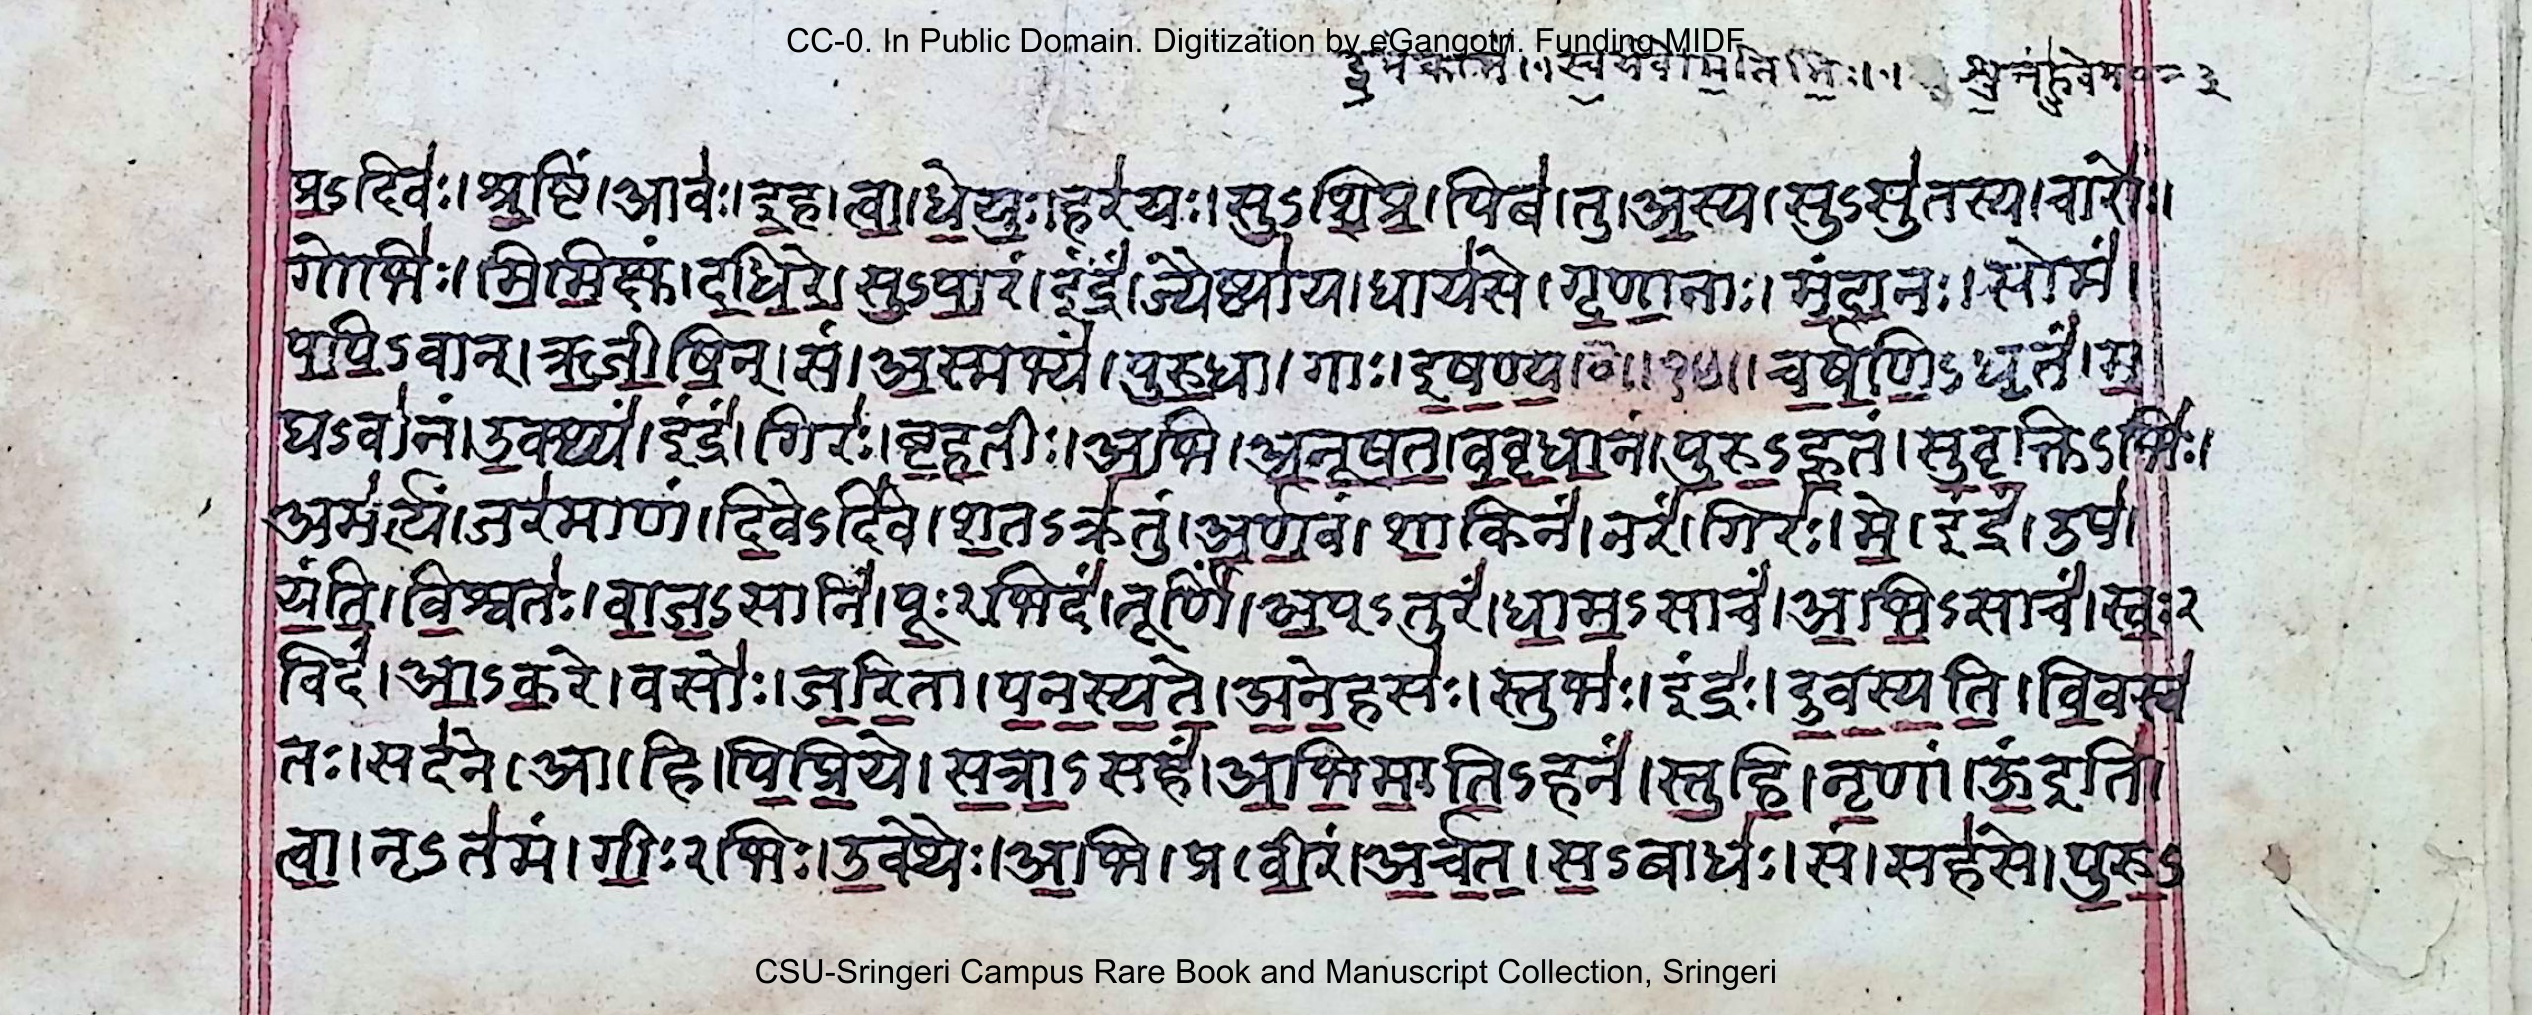 CC-0. In Public Domain. Digitization by eGangotri. Funding MIDF
प्रऽदिवः। श्रुष्टिं। आवः। इह। त्वा। धेयुः। हरयः। सुऽशिप्र। पिब। तु। अस्य। सुऽसुतस्य। चारोः।
गोभिः। मिमिक्षुं। दधिरे। सुऽपारं। इंद्रं। ज्यैष्ठ्याय। धायसे। गृणानाः। मंदानः। सोमं।
पपिऽवान्। ऋजीषिन्। सं। अस्मभ्यं। पुरुधा। गाः। इषण्य।०।।१५।। चर्षणिऽधृतं। म
घऽवानं। उक्थ्यं। इंद्रं। गिरः। बृहतीः। अभि। अनूषत। ववृधानं। पुरुऽहूतं। सुवृक्तिऽभिः।
अमर्त्यं। जरमाणं। दिवेऽदिवे। शतऽक्रतुं। अर्णवं। शाकिनं। नरं। गिरः। मे। इंद्रं। उप।
यंति। विश्वतः। वाजऽसनिं। पूःऽभिदं। तूर्णिं। अपऽतुरं। धामऽसाचं। अभिऽसाचं। स्वःऽ
विदं। आऽकरे। वसोः। जरिता। पनस्यते। अनेहसः। स्तुभः। इंद्रः। दुवस्यति। विवस्व
तः। सदने। आ। हि। पिप्रिये। सत्राऽसहं। अभिमातिऽहनं। स्तुहि। नृणां। ऊं इति।
त्वा। नृऽतमं। गीःऽभिः। उक्थैः। अभि। प्र। वीरं। अर्चत। सऽबाधः। सं। सहसे। पुरुऽ
CSU-Sringeri Campus Rare Book and Manuscript Collection, Sringeri